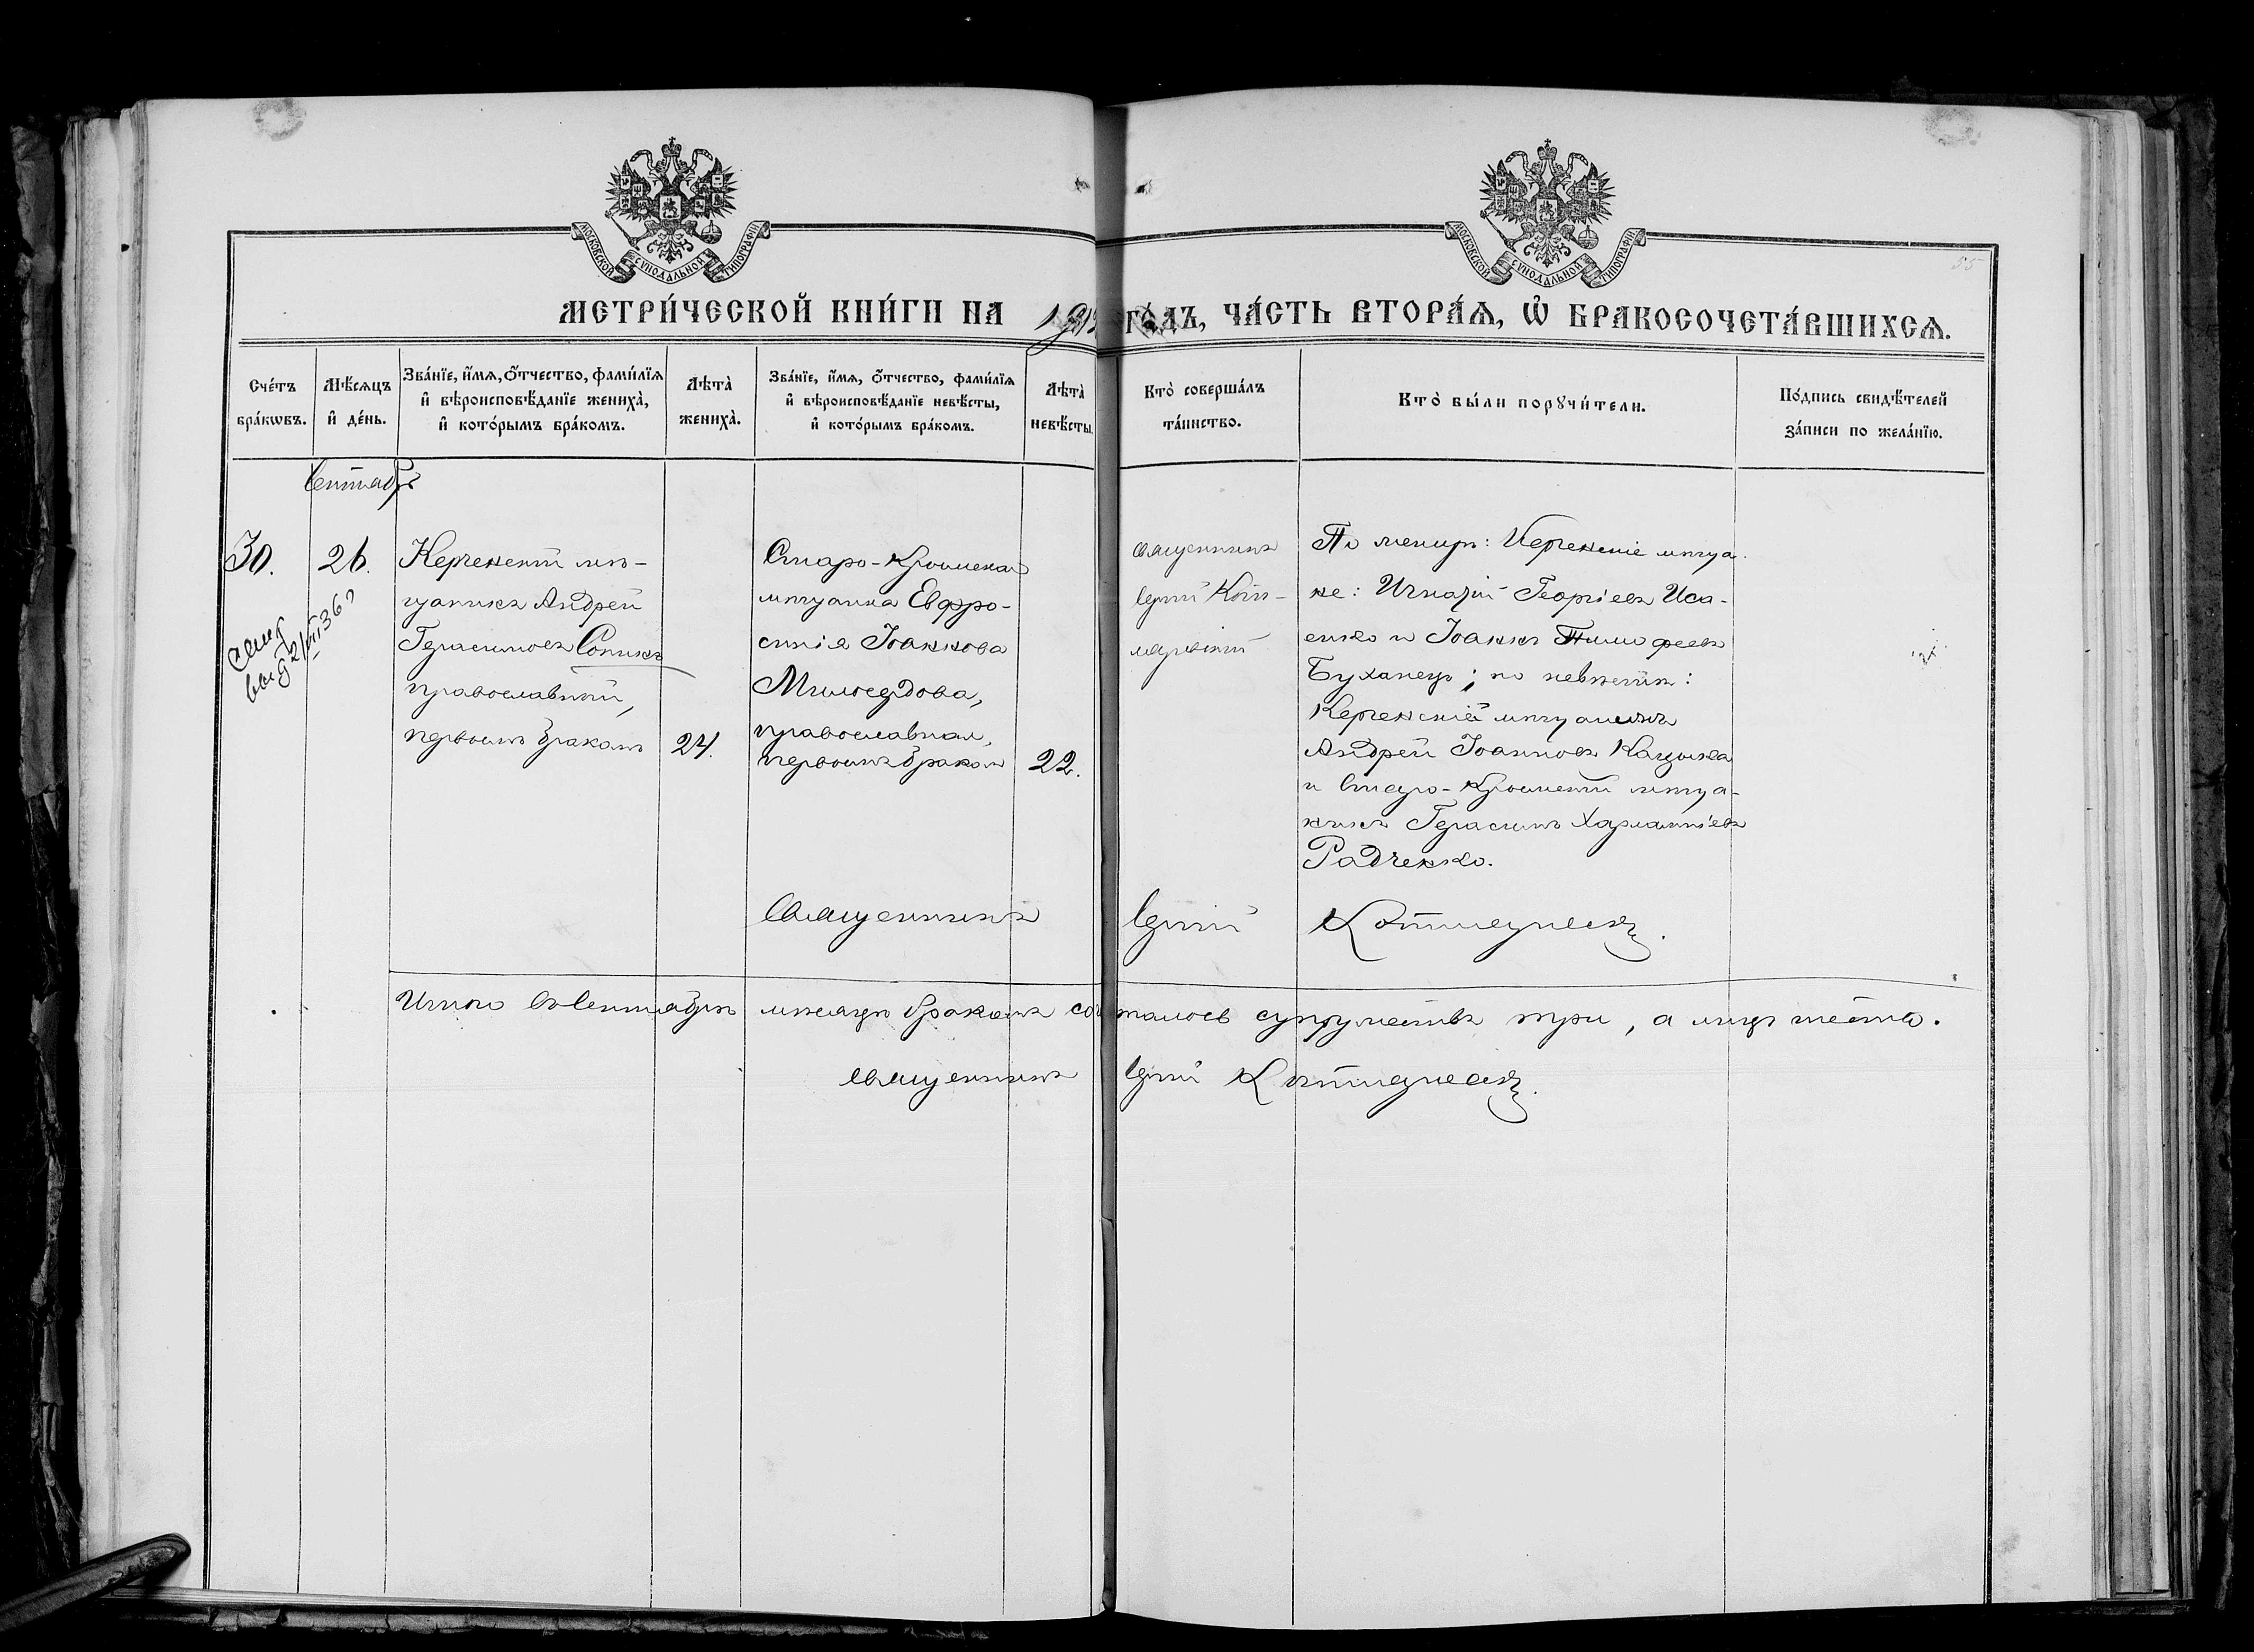 МОСКОВСКОЙ СѴНОДАЛЬНОЙ ТИПОГРАФІИ
МОСКОВСКОЙ СѴНОДАЛЬНОЙ ТИПОГРАФІИ
55
МЕТРИ́ЧЕСКОЙ КНИ́ГИ НА 191 ГО́ДЪ, ЧА́СТЬ ВТОРА́Ѧ, Ѡ҆ БРАКОСОЧЕТА́ВШИХСѦ.
Сче́тъ бра́кѡвъ.
Мѣ́сѧцъ и҆ де́нь.
Зва́нїе, и҆́мѧ, ѻ҆́тчество, фами́лїѧ
и҆ вѣроисповѣ́данїе жениха̀,
и҆ кото́рымъ бра́комъ.
Лѣта̀ жениха̀.
Зва́нїе, и҆́мѧ, ѻ҆́тчество, фами́лїѧ
и҆ вѣроисповѣ́данїе невѣ́сты,
и҆ кото́рымъ бра́комъ.
Лѣта̀ невѣ́сты.
Кто̀ соверша́лъ
та́инство.
Кто̀ бы́ли порꙋчи́тели.
По́дпись свидѣ́телей
за́писи по жела́нїю.
Сентябрь
30.
26.
Керченскій мѣ-
щанинъ Андрей
Герасимовъ Сопикъ
православный,
первымъ бракомъ
24.
Старо-Крымская
мѣщанка Евфро-
синія Іоаннова
Милосердова,
православная,
первымъ бракомъ
22.
священникъ
Сергій
По женихѣ: Керченскіе мѣща
не: Игнатій Георгіевъ Иса-
енко и Іоаннъ Тимофеевъ
Буханецъ; по невѣстѣ:
Керченскій мѣщанинъ
Андрей Іоанновъ
и Старо-Крымскій мѣща-
нинъ Герасимъ Харлампіевъ
Радченко.
Священникъ Сергій
Итого въ Сентябрѣ мѣсяцѣ бракомъ сочеталось супружествъ три, а лицъ шесть.
священникъ Сергій